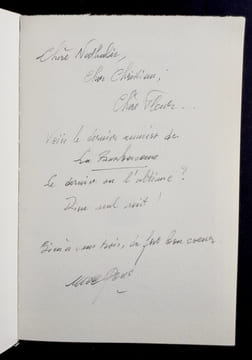 Chère Nathalie,
Cher Christian,
Chère Fleur...
Voici le dernier numéro de
La
Le dernier ou l'ultime ?
Dieu seul sait !
Bien à vous trois, de fort bon coeur